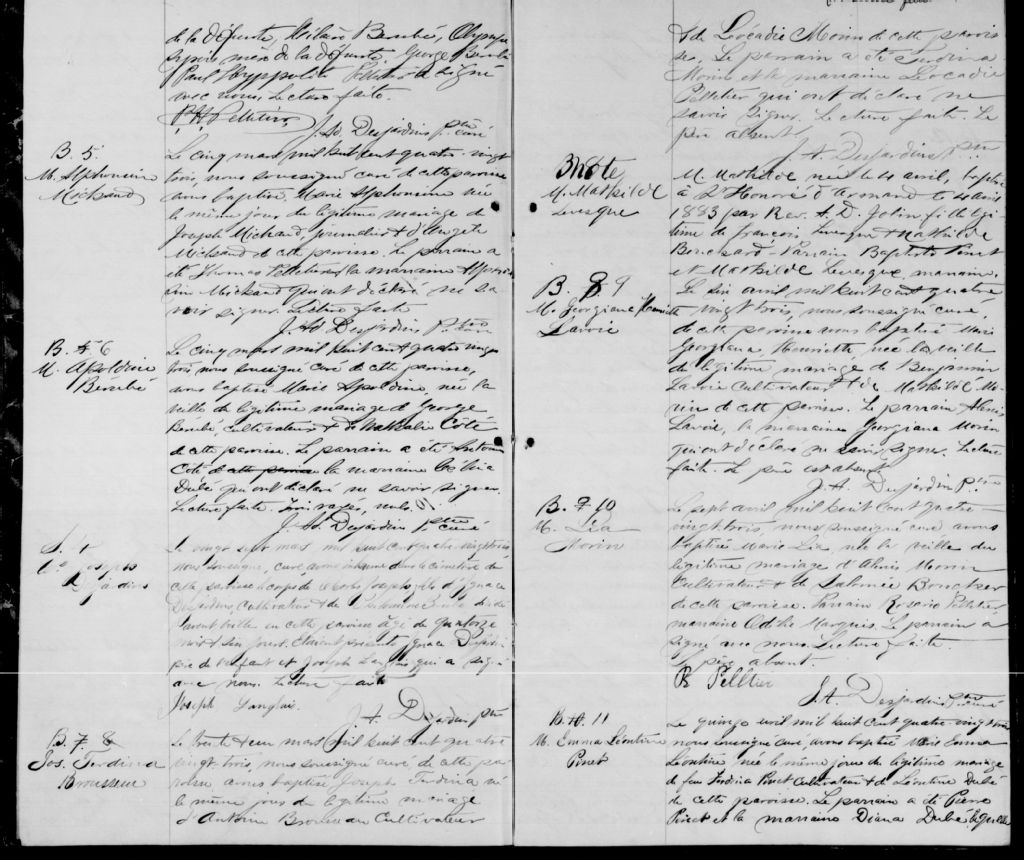 de la défunte, Hilaire Bérubé, Olympe
père de la défunte, George Bérubé
Paul Hyppolite Pelletier a signé
avec nous. Lecture faite.
P. H. Pelletier
J. Ad. Desjardins Ptre curé
B. 5
M. Alphonsine
Michaud
Le cinq mars mil huit cent quatre-vingt
trois, nous soussigné curé de cette paroisse
avons baptisé Marie Alphonsine née
le même jour du légitime mariage de
Joseph Michaud journalier & d'Angèle
Michaud de cette paroisse. Le parrain a
été Thomas Pelletier, la marraine Alphon
sine Michaud qui ont déclaré ne sa
voir signer. Lecture faite
J. Ad. Desjardins Ptre
B. 6
M. Apoldine
Bérubé
Le cinq mars mil huit cent quatre vingt
trois nous soussigné curé de cette paroisse,
avons baptisé Marie Apoldine, née la
veille du légitime mariage de George
Bérubé, cultivateur & de Nathalie Côté
de cette paroisse. Le parrain a été Antoine
Côté de cette paroisse la marraine
Dubé qui ont déclaré ne savoir signer.
Lecture faite. Trois rayés, nuls.
J. Ad. Desjardins Ptre curé
S. 4
Joseph
Desjardins
Le vingt sept mars mil huit cent quatre-vingt trois
nous soussigné, curé avons inhumé dans le cimetière de
cette paroisse le corps de Joseph fils d'Ignace
Desjardins, cultivateur & de
avant veille en cette paroisse âgé de quatorze
mois & six jours. Etaient présents Ignace Desjardins
père de l'enfant et Joseph Langlais qui a signé
avec nous. Lecture faite
Joseph Langlais.
J. A. Desjardins Ptre
B. 7 8
Jos. Ferdina
Brousseau
Le trente & un mars mil huit cent quatre
vingt trois nous soussigné curé de cette pa
roisse avons baptisé Joseph Ferdina né
le même jour du légitime mariage
d'Antoine Brousseau Cultivateur
& de Léocadie Morin de cette parois
se. Le parrain a été Ferdina
Morin et la marraine Léocadie
Pelletier qui ont déclaré ne
savoir signer. Lecture faite. Le
père absent
J. A. Desjardins Ptre
Note
M. Mathilde
Levesque
M. Mathilde née le 4 avril, baptisée
à St Honoré d'Armand le 4 avril
1883 par Rev. A. D. Jolin fille légi
time de françois Levesque & Mathilde
Bouchard - Parrain Baptiste Pinet
et Mathilde Levesque marraine.
B. 8 9
M. Georgiana Henriette
Lavoie
Le six avril mil huit cent quatre
vingt trois, nous soussigné curé,
de cette paroisse avons baptisé Marie
Georgiana Henriette, née la veille
du légitime mariage de Benjamin
Lavoie Cultivateur & de Mathilde Mo
rin de cette paroisse. Le parrain Alexis
Lavoie, la marraine Georgiana Morin
qui ont déclaré ne savoir signer. Lecture
faite. Le père est absent
J. A. Desjardins Ptre
B. 9 10
M. Lia
Morin
Le sept avril mil huit cent quatre
vingt trois nous soussigné curé avons
baptisé Marie Lia, née la veille du
légitime mariage d'Alexis Morin
Cultivateur & de Salomée Boucher
de cette paroisse. Parrain Rosario Pelletier
marraine Odile Marquis. Le parrain a
signé avec nous. Lecture faite.
père absent.
R Pelltier
J. A. Desjardins Ptre curé
B. 10. 11
M. Emma Léontine
Pinet
Le quinze avril mil huit cent quatre vingt trois
nous soussigné curé, avons baptisé Marie Emma
Léontine née le même jour du légitime mariage
de feu Ferdina Pinet Cultivateur & de Léontine Dubé
de cette paroisse. Le parrain a été Pierre
Pinet et la marraine Diana Dubé laquelle